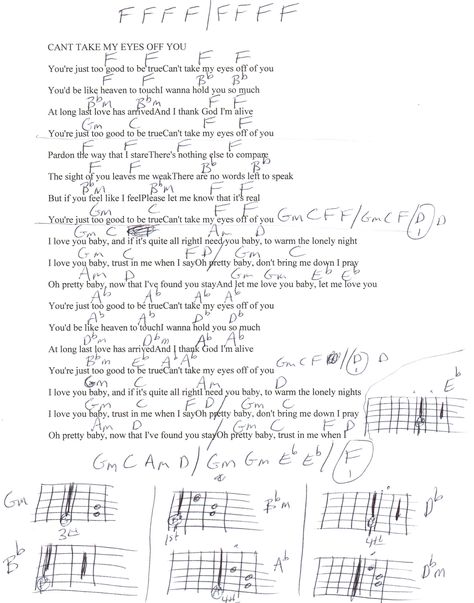 F F F F / F F F F
CANT TAKE MY EYES OFF YOU
F F F F
You're just too good to be trueCan't take my eyes off of you
F F Bb Bb
You'd be like heaven to touchI wanna hold you so much
Bbm Bbm F F
At long last love has arrivedAnd I thank God I'm alive
Gm C F F
You're just too good to be trueCan't take my eyes off of you
F F F F
Pardon the way that I stareThere's nothing else to compare
F F Bb Bb
The sight of you leaves me weakThere are no words left to speak
Bbm Bbm F F
But if you feel like I feelPlease let me know that it's real
Gm C F F
You're just too good to be trueCan't take my eyes off of you Gm C F F / Gm C F / D D
Gm C Am D
I love you baby, and if it's quite all rightI need you baby, to warm the lonely night
Gm C F D / Gm C
I love you baby, trust in me when I sayOh pretty baby, don't bring me down I pray
Am D Gm Gm Eb Eb
Oh pretty baby, now that I've found you stayAnd let me love you baby, let me love you
Ab Ab Ab Ab
You're just too good to be trueCan't take my eyes off of you
Ab Ab Db Db
You'd be like heaven to touchI wanna hold you so much
Dbm Dbm Ab Ab
At long last love has arrivedAnd I thank God I'm alive
Bbm Eb Ab Ab
You're just too good to be trueCan't take my eyes off of you Gm C F / D D
Gm C Am D
I love you baby, and if it's quite all rightI need you baby, to warm the lonely night
Gm C F D / Gm C
I love you baby, trust in me when I sayOh pretty baby, don't bring me down I pray
Eb
Am D Gm C
Oh pretty baby, now that I've found you stayOh pretty baby, trust in me when I
Gm C Am D / Gm Gm Eb Eb / F
Gm 3rd
Bbm 1st
Db 4th
Bb
Ab 4th
Dbm